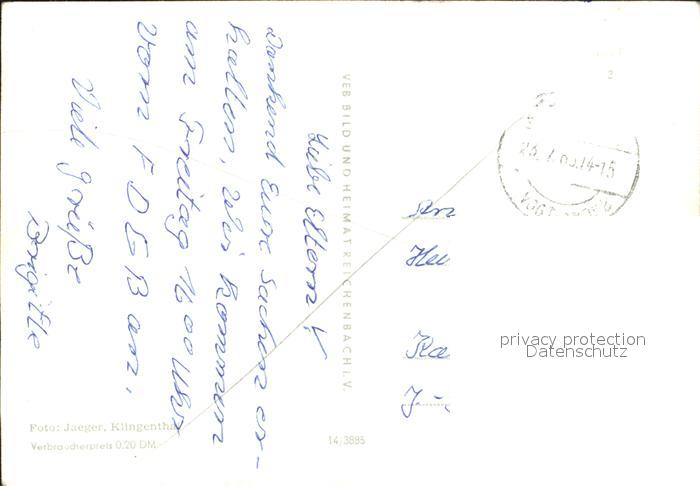 Liebe Eltern!
Dankend Eure Sachen er-
halten, Wir kommen
am Freitag 16 00 Uhr
vom FDGB an,
Viele Grüße
Brigitte
VEB BILD UND HEIMAT REICHENBACH i. V.
14/3885
Foto: Jaeger, Klingenthal
Verbraucherpreis 0,20 DM
An
Ka
privacy protection
Datenschutz